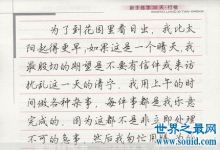 为了到花园里看日出，我比太
阳起得更早，如果这是一个晴天，我
最殷切的期望是不要有信件或来访
扰乱这一天的清宁。我用上午的时
间做各种杂事，每件事都是我乐意
完成的，因为这都不是非立即处理
不可的急事，然后我匆忙用
世界之最网
www.